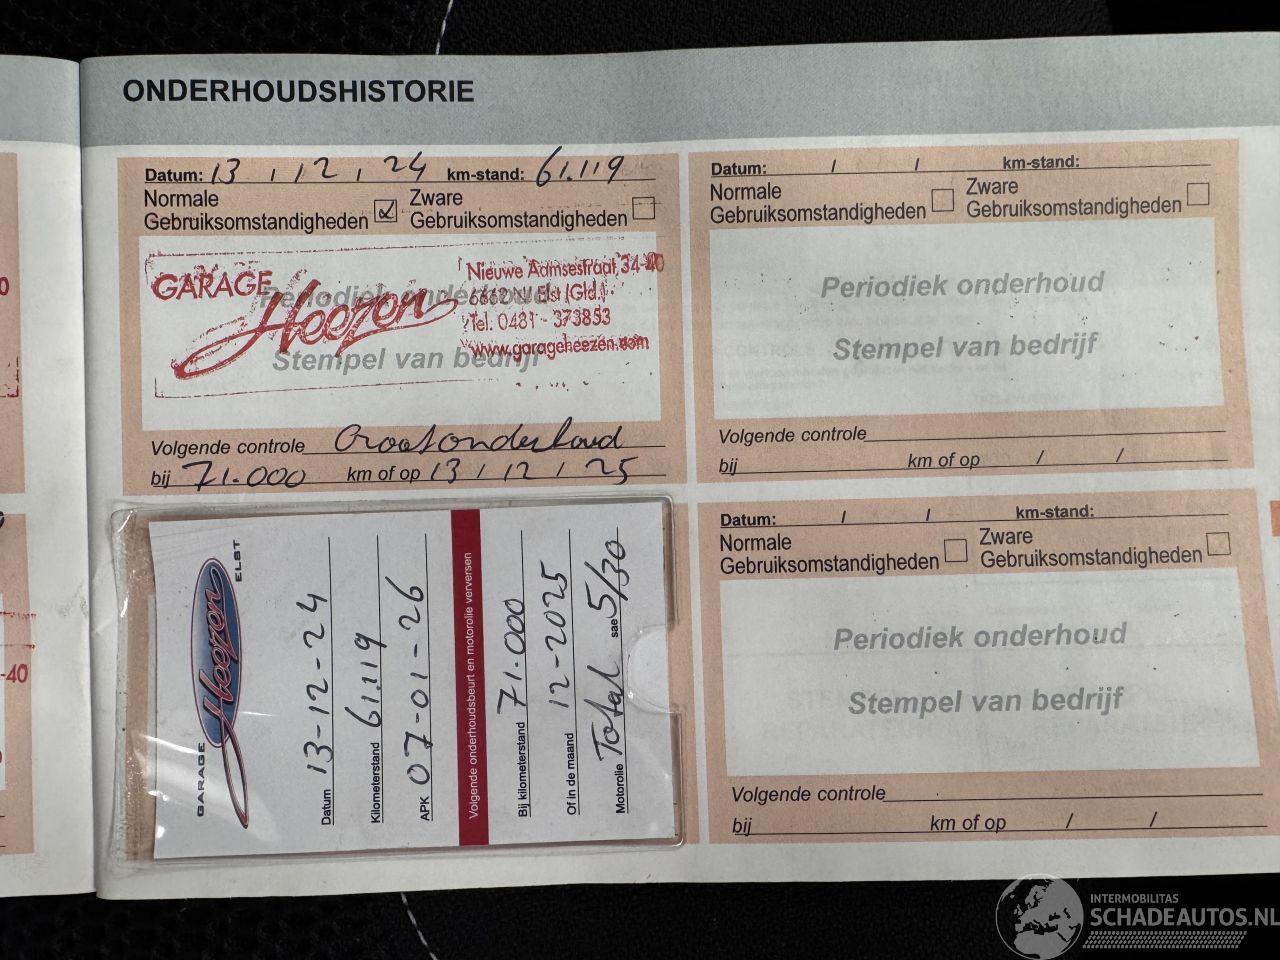 ONDERHOUDSHISTORIE
Datum: 13 / 12 / 24 km-stand: 61.119
Normale Gebruiksomstandigheden Zware Gebruiksomstandigheden
GARAGE Heezen
Nieuwe Aamsestraat 34-40
6662 NJ Elst (Gld.)
Tel. 0481 - 373853
www.garageheezen.com
Periodiek onderhoud
Stempel van bedrijf
Volgende controle Grootonderhoud
bij 71.000 km of op 13 / 12 / 25
Datum: / / km-stand:
Normale Gebruiksomstandigheden Zware Gebruiksomstandigheden
Periodiek onderhoud
Stempel van bedrijf
Volgende controle
bij km of op / /
GARAGE Heezen ELST
Datum 13-12-24
Kilometerstand 61.119
APK 07-01-26
Volgende onderhoudsbeurt en motorolie verversen
Bij kilometerstand 71.000
Of in de maand 12-2025
Motorolie Total sae 5/30
Datum: / / km-stand:
Normale Gebruiksomstandigheden Zware Gebruiksomstandigheden
Periodiek onderhoud
Stempel van bedrijf
Volgende controle
bij km of op / /
0
-40
INTERMOBILITAS
SCHADEAUTOS.NL